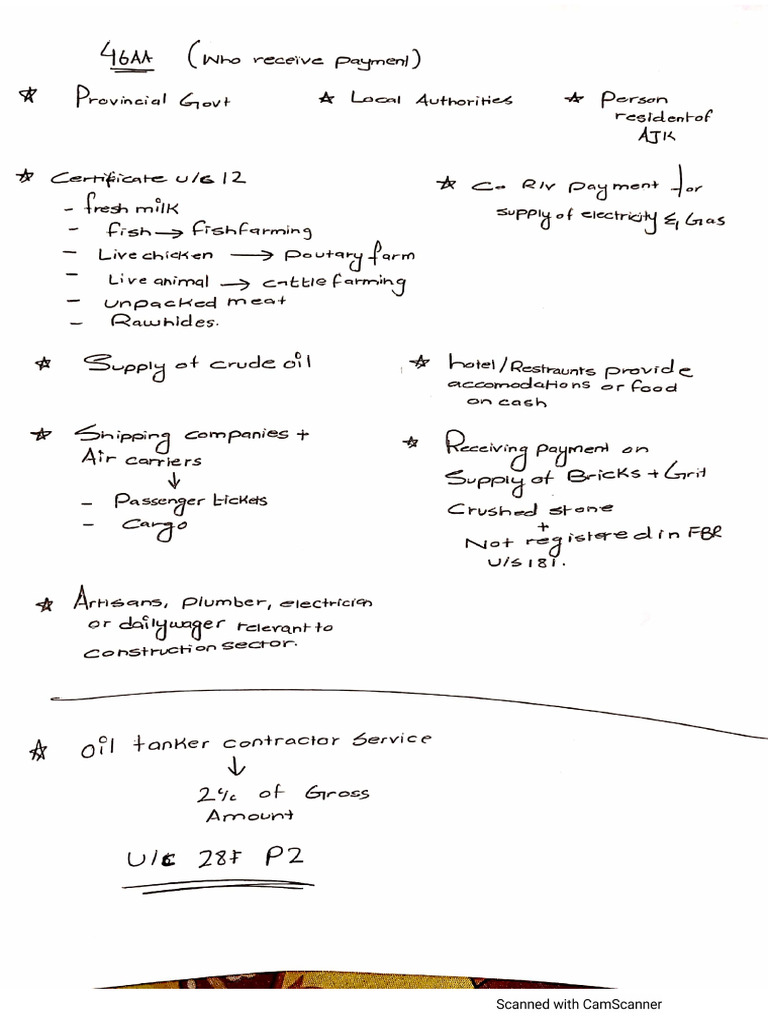 46AA (Who receive payment)
☆ Provincial Govt
☆ Local Authorities
☆ Person
resident of
AJK
☆ Certificate U/C 12
- fresh milk
- fish → fishfarming
- Live chicken → Poutary farm
- Live animal → cattle farming
- unpacked meat
- Rawhides.
☆ Co R/v payment for
supply of electricity & Gas
☆ Supply of crude oil
☆ hotel/Restraunts provide
accomodations or food
on cash
☆ Shipping companies +
Air carriers
↓
- Passenger tickets
- Cargo
☆ Receiving payment on
Supply of Bricks + Grit
Crushed stone
+
Not registered in FBR
U/S 181.
☆ Artisans, plumber, electrician
or dailywager relevant to
construction sector.
☆ Oil tanker contractor Service
↓
2% of Gross
Amount
U/C 28F P2
Scanned with CamScanner